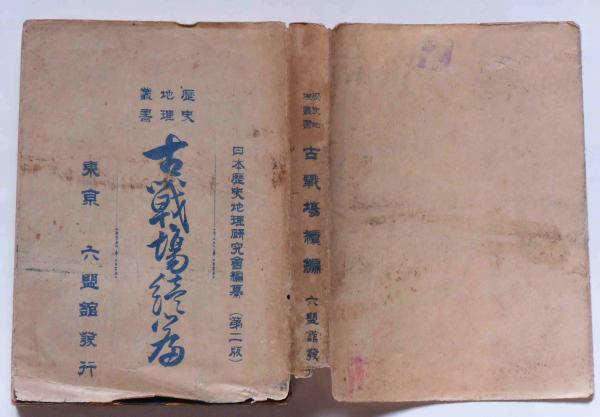 日本歷史地理研究會編纂(第二版)
歷史
地理
叢書
古戰場續篇
東京 六盟館發行
歷史地
理叢書
古戰場續編
六盟館發行